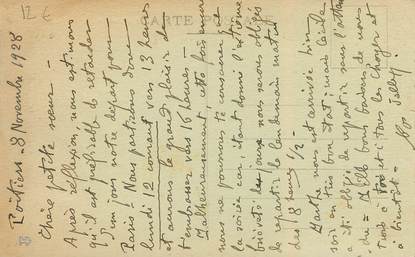 12 €
CARTE
Poitiers 8 Novembre 1928
Chère petite sœur -
Après réflexion, nous est-nous
qu'il est préférable de retarder
d'un jour notre départ pour
Paris! Nous partirons donc
lundi 12 courant vers 13 heures
et aurons le grand plaisir de
t'embrasser vers 16 heures -
Malheureusement, cette fois
nous ne pourrons te consacrer
la soirée car, étant donné l'extrême
brièveté nous serons obligés
de repartir le lendemain matin
dès 18 heures 1/2 -
nous est arrivée hier
soir en très bon état; mais
a été obligé de repartir sous
due = Mille bons baisers de nous
Trois à Toi et à Tous les
à bientôt -